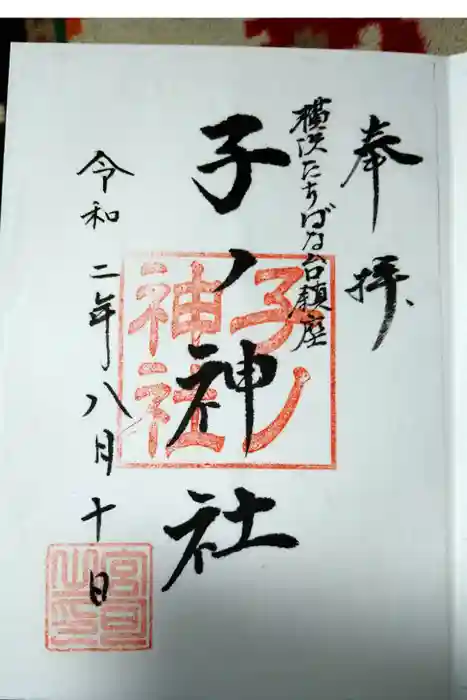 奉拝
横浜たちばな台鎮座
子ノ神社
令和二年八月十日
子ノ
神社
宮司
之印